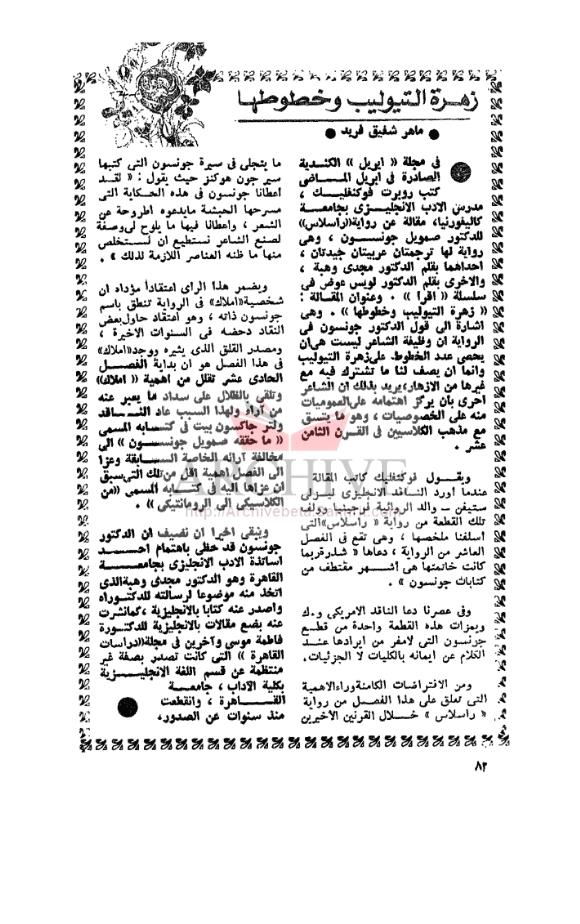 زهرة التيوليب وخطوطها
● ماهر شفيق فريد ●
فى مجلة « ابريل » الكندية
الصادرة فى ابريل الماضى
كتب روبرت فوكنفليك ،
مدرس الادب الانجليزى بجامعة
كاليفورنيا، مقالة عن رواية «راسلاس»
للدكتور صمويل جونسون ، وهى
رواية لها ترجمتان عربيتان جيدتان ،
احداهما بقلم الدكتور مجدى وهبة ،
والاخرى بقلم الدكتور لويس عوض فى
سلسلة « اقرا » . وعنوان المقالة :
« زهرة التيوليب وخطوطها » . وهى
اشارة الى قول الدكتور جونسون فى
الرواية ان وظيفة الشاعر ليست هى ان
يحصى عدد الخطوط على زهرة التيوليب
وانما ان يصف لنا ما تشترك فيه مع
غيرها من الازهار، يريد بذلك ان الشاعر
احرى بان يركز اهتمامه على العموميات
منه على الخصوصيات ، وهو ما يتسق
مع مذهب الكلاسيين فى القرن الثامن
عشر .
ويقول فوكنفليك كاتب المقالة
عندما أورد الناقد الانجليزى ليزلى
ستيفن – والد الروائية فرجينيا وولف
تلك القطعة من رواية « راسلاس» التى
أسلفنا ملخصها ، وهى تقع فى الفصل
العاشر من الرواية ، دعاها « شذرة ربما
كانت خاتمتها هى أشهر مقتطف من
كتابات جونسون » .
وفى عصرنا دعا الناقد الامريكى و.ك
ويمزات هذه القطعة واحدة من قطع
جونسون التى لامفر من ايرادها عند
الكلام عن ايمانه بالكليات لا الجزئيات.
ومن الافتراضات الكامنة وراء الاهمية
التى تعلق على هذا الفصل من رواية
« راسلاس » خلال القرنين الأخيرين
ما يتجلى فى سيرة جونسون التى كتبها
سير جون هوكنز حيث يقول : « لقد
أعطانا جونسون فى هذه الحكاية التى
مسرحها الحبشة مايدعوه اطروحة عن
الشعر ، وأعطانا فيها ما يلوح لى وصفة
لصنع الشاعر نستطيع ان نستخلص
منها ما ظنه العناصر اللازمة لذلك » .
ويضمر هذا الراى اعتقادا مؤداه ان
شخصية «املاك» فى الرواية تنطق باسم
جونسون ذاته ، وهو اعتقاد حاول بعض
النقاد دحضه فى السنوات الاخيرة ،
ومصدر القلق الذى يثيره ووجد «املاك»
فى هذا الفصل هو ان بداية الفصل
الحادى عشر تقلل من اهمية « املاك»
وتلقى بالظلال على سداد ما يعبر عنه
من آراء ولهذا السبب عاد الناقد
ولتر جاكسون بيت فى كتابه المسمى
« ما حققه صمويل جونسون » الى
مخالفة آرائه الخاصة السابقة وعزا
الى الفصل اهمية اقل من تلك التى سبق
ان عزاها اليه فى كتابه المسمى «من
الكلاسيكى الى الرومانتيكى» .
ويبقى أخيرا ان نضيف ان الدكتور
جونسون قد حظى باهتمام احد
اساتذة الادب الانجليزى بجامعة
القاهرة وهو الدكتور مجدى وهبة الذى
اتخذ منه موضوعا لرسالته للدكتوراه
وأصدر عنه كتابا بالانجليزية ، كما نشرت
عنه بضع مقالات بالانجليزية للدكتورة
فاطمة موسى وآخرين فى مجلة «دراسات
القاهرة » التى كانت تصدر بصفة غير
منتظمة عن قسم اللغة الانجليزية
بكلية الآداب ، جامعة
القاهرة ، وانقطعت
منذ سنوات عن الصدور.
ARCHIVE
٨٢